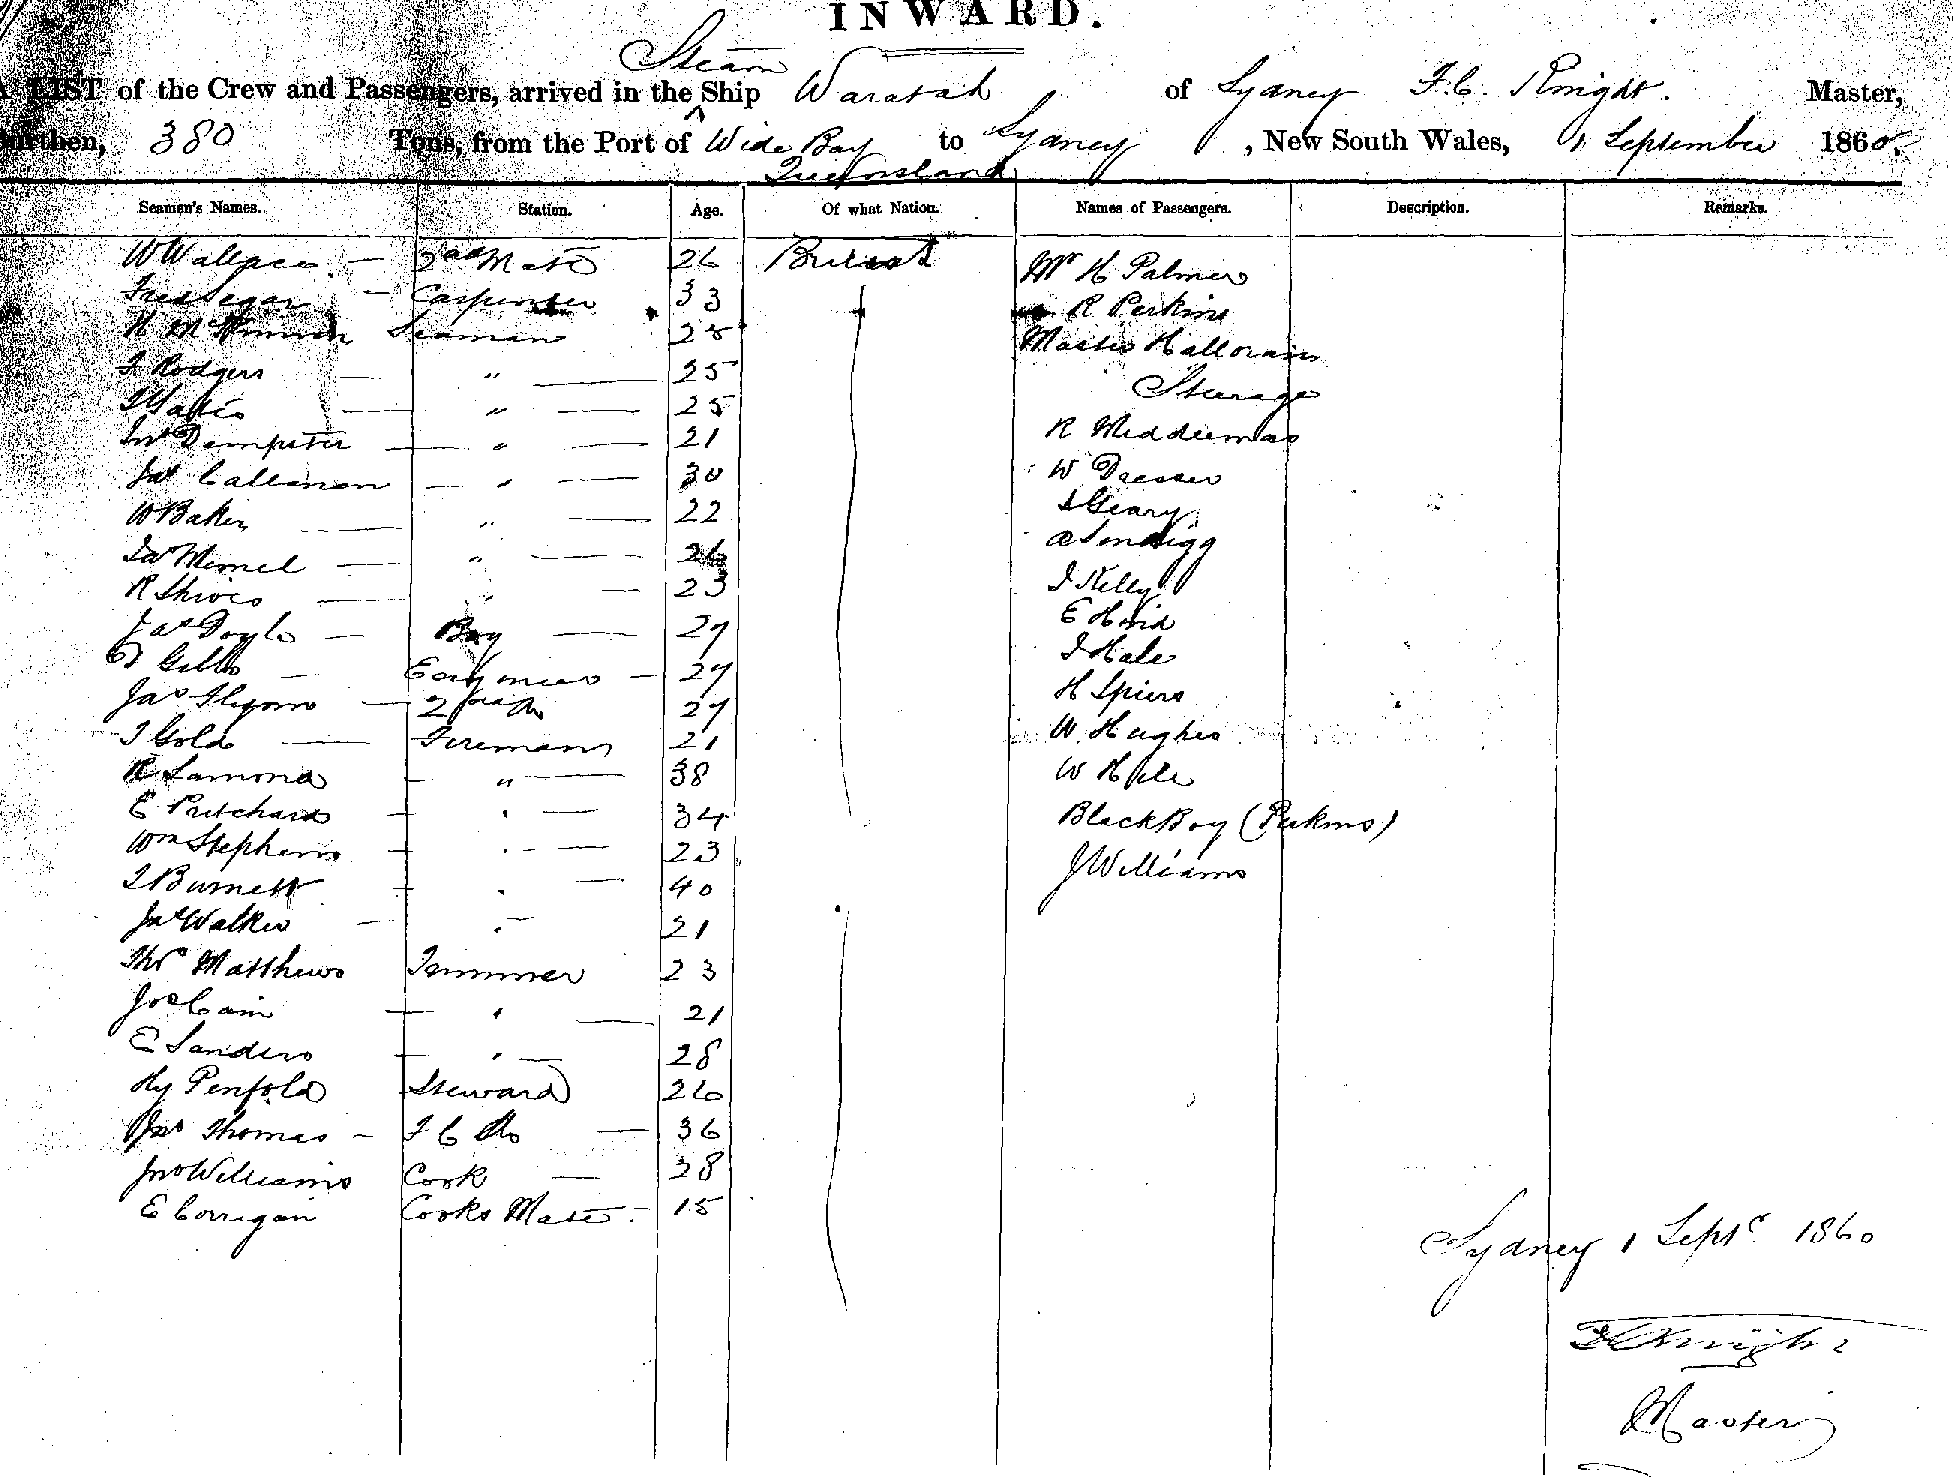 INWARD.
Steam
A LIST of the Crew and Passengers, arrived in the ^ Ship Waratah of Sydney F. C. Knight. Master,
Burthen, 380 Tons, from the Port of Wide Bay to Sydney, New South Wales, 1 September 1860.
Queensland
Seamen's Names. Station. Age. Of what Nation. Names of Passengers. Description. Remarks.
W Wallace — 2nd Mate 26 British Mr H Palmer
Fred Segar — Carpenter 33 " R Perkins
Seaman 25 Master Halloran
J Rodgers — " — 25 Steerage
— " — 25
Jno Dempster — " — 21 R Middlemas
Jas Callanan — " — 30 W Dresser
W Baker — " — 22 Geary
— " — 26
R Shives — " — 23 J Kelly
Jas Doyle — Boy — 27 E Hoid
Gibbs — Engineer — 27 J Hale
Jas Flynn — 2nd Do 27 H Spiers
J Gold — Fireman 21 W. Hughes
R Lamond — " — 38 W Hile
E Pritchard — " — 34 Black Boy (Perkins)
Wm Stephens — " — 23 J Williams
J Burnett — " — 40
Jas Walker — " — 21
Thos Matthews Trimmer 23
Jos Cain — " — 21
E Sanders — " — 28
Hy Penfold Steward 26
Jas Thomas — F C Do — 36
Jno Williams Cook — 28
E Corrigan Cooks Mate 15
Sydney 1 Septr 1860
F C Knight
Master